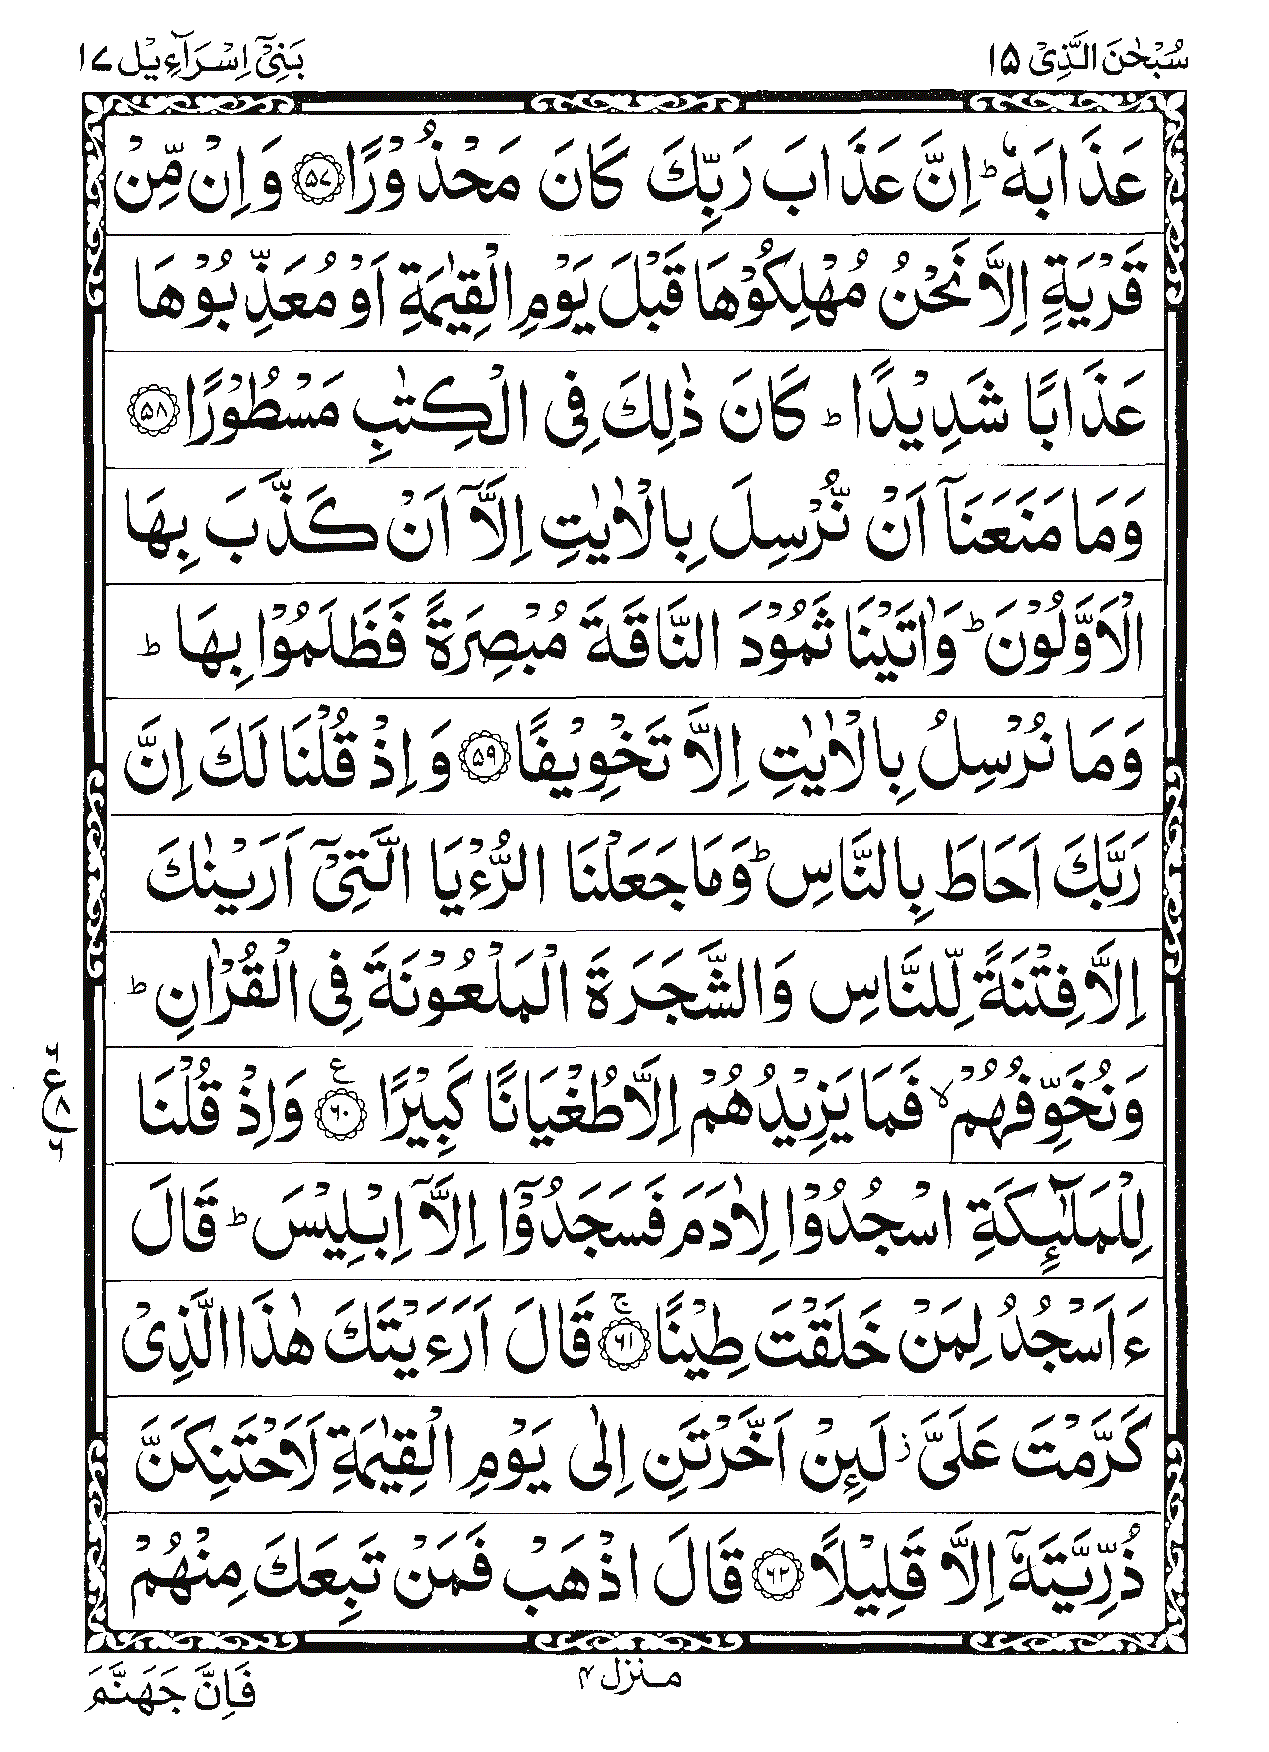 سُبْحٰنَ الَّذِیْ ۱۵
بَنِیْٓ اِسْرَآءِیْل ۱۷
عَذَابَهٗ ؕ اِنَّ عَذَابَ رَبِّكَ كَانَ مَحْذُوْرًا ۝۵۷ وَ اِنْ مِّنْ
قَرْیَةٍ اِلَّا نَحْنُ مُهْلِكُوْهَا قَبْلَ یَوْمِ الْقِیٰمَةِ اَوْ مُعَذِّبُوْهَا
عَذَابًا شَدِیْدًا ؕ كَانَ ذٰلِكَ فِی الْكِتٰبِ مَسْطُوْرًا ۝۵۸
وَ مَا مَنَعَنَاۤ اَنْ نُّرْسِلَ بِالْاٰیٰتِ اِلَّاۤ اَنْ كَذَّبَ بِهَا
الْاَوَّلُوْنَ ؕ وَ اٰتَیْنَا ثَمُوْدَ النَّاقَةَ مُبْصِرَةً فَظَلَمُوْا بِهَا ؕ
وَ مَا نُرْسِلُ بِالْاٰیٰتِ اِلَّا تَخْوِیْفًا ۝۵۹ وَ اِذْ قُلْنَا لَكَ اِنَّ
رَبَّكَ اَحَاطَ بِالنَّاسِ ؕ وَ مَا جَعَلْنَا الرُّءْیَا الَّتِیْۤ اَرَیْنٰكَ
اِلَّا فِتْنَةً لِّلنَّاسِ وَ الشَّجَرَةَ الْمَلْعُوْنَةَ فِی الْقُرْاٰنِ ؕ
وَ نُخَوِّفُهُمْ ۙ فَمَا یَزِیْدُهُمْ اِلَّا طُغْیَانًا كَبِیْرًا ۝۶۰ ع وَ اِذْ قُلْنَا
۲
ع
۸
۶
لِلْمَلٰٓىِٕكَةِ اسْجُدُوْا لِاٰدَمَ فَسَجَدُوْۤا اِلَّاۤ اِبْلِیْسَ ؕ قَالَ
ءَاَسْجُدُ لِمَنْ خَلَقْتَ طِیْنًا ۝۶۱ ۚ قَالَ اَرَءَیْتَكَ هٰذَا الَّذِیْ
كَرَّمْتَ عَلَیَّ ؗ لَىِٕنْ اَخَّرْتَنِ اِلٰی یَوْمِ الْقِیٰمَةِ لَاَحْتَنِكَنَّ
ذُرِّیَّتَهٗۤ اِلَّا قَلِیْلًا ۝۶۲ قَالَ اذْهَبْ فَمَنْ تَبِعَكَ مِنْهُمْ
منزل ۴
فَاِنَّ جَهَنَّمَ